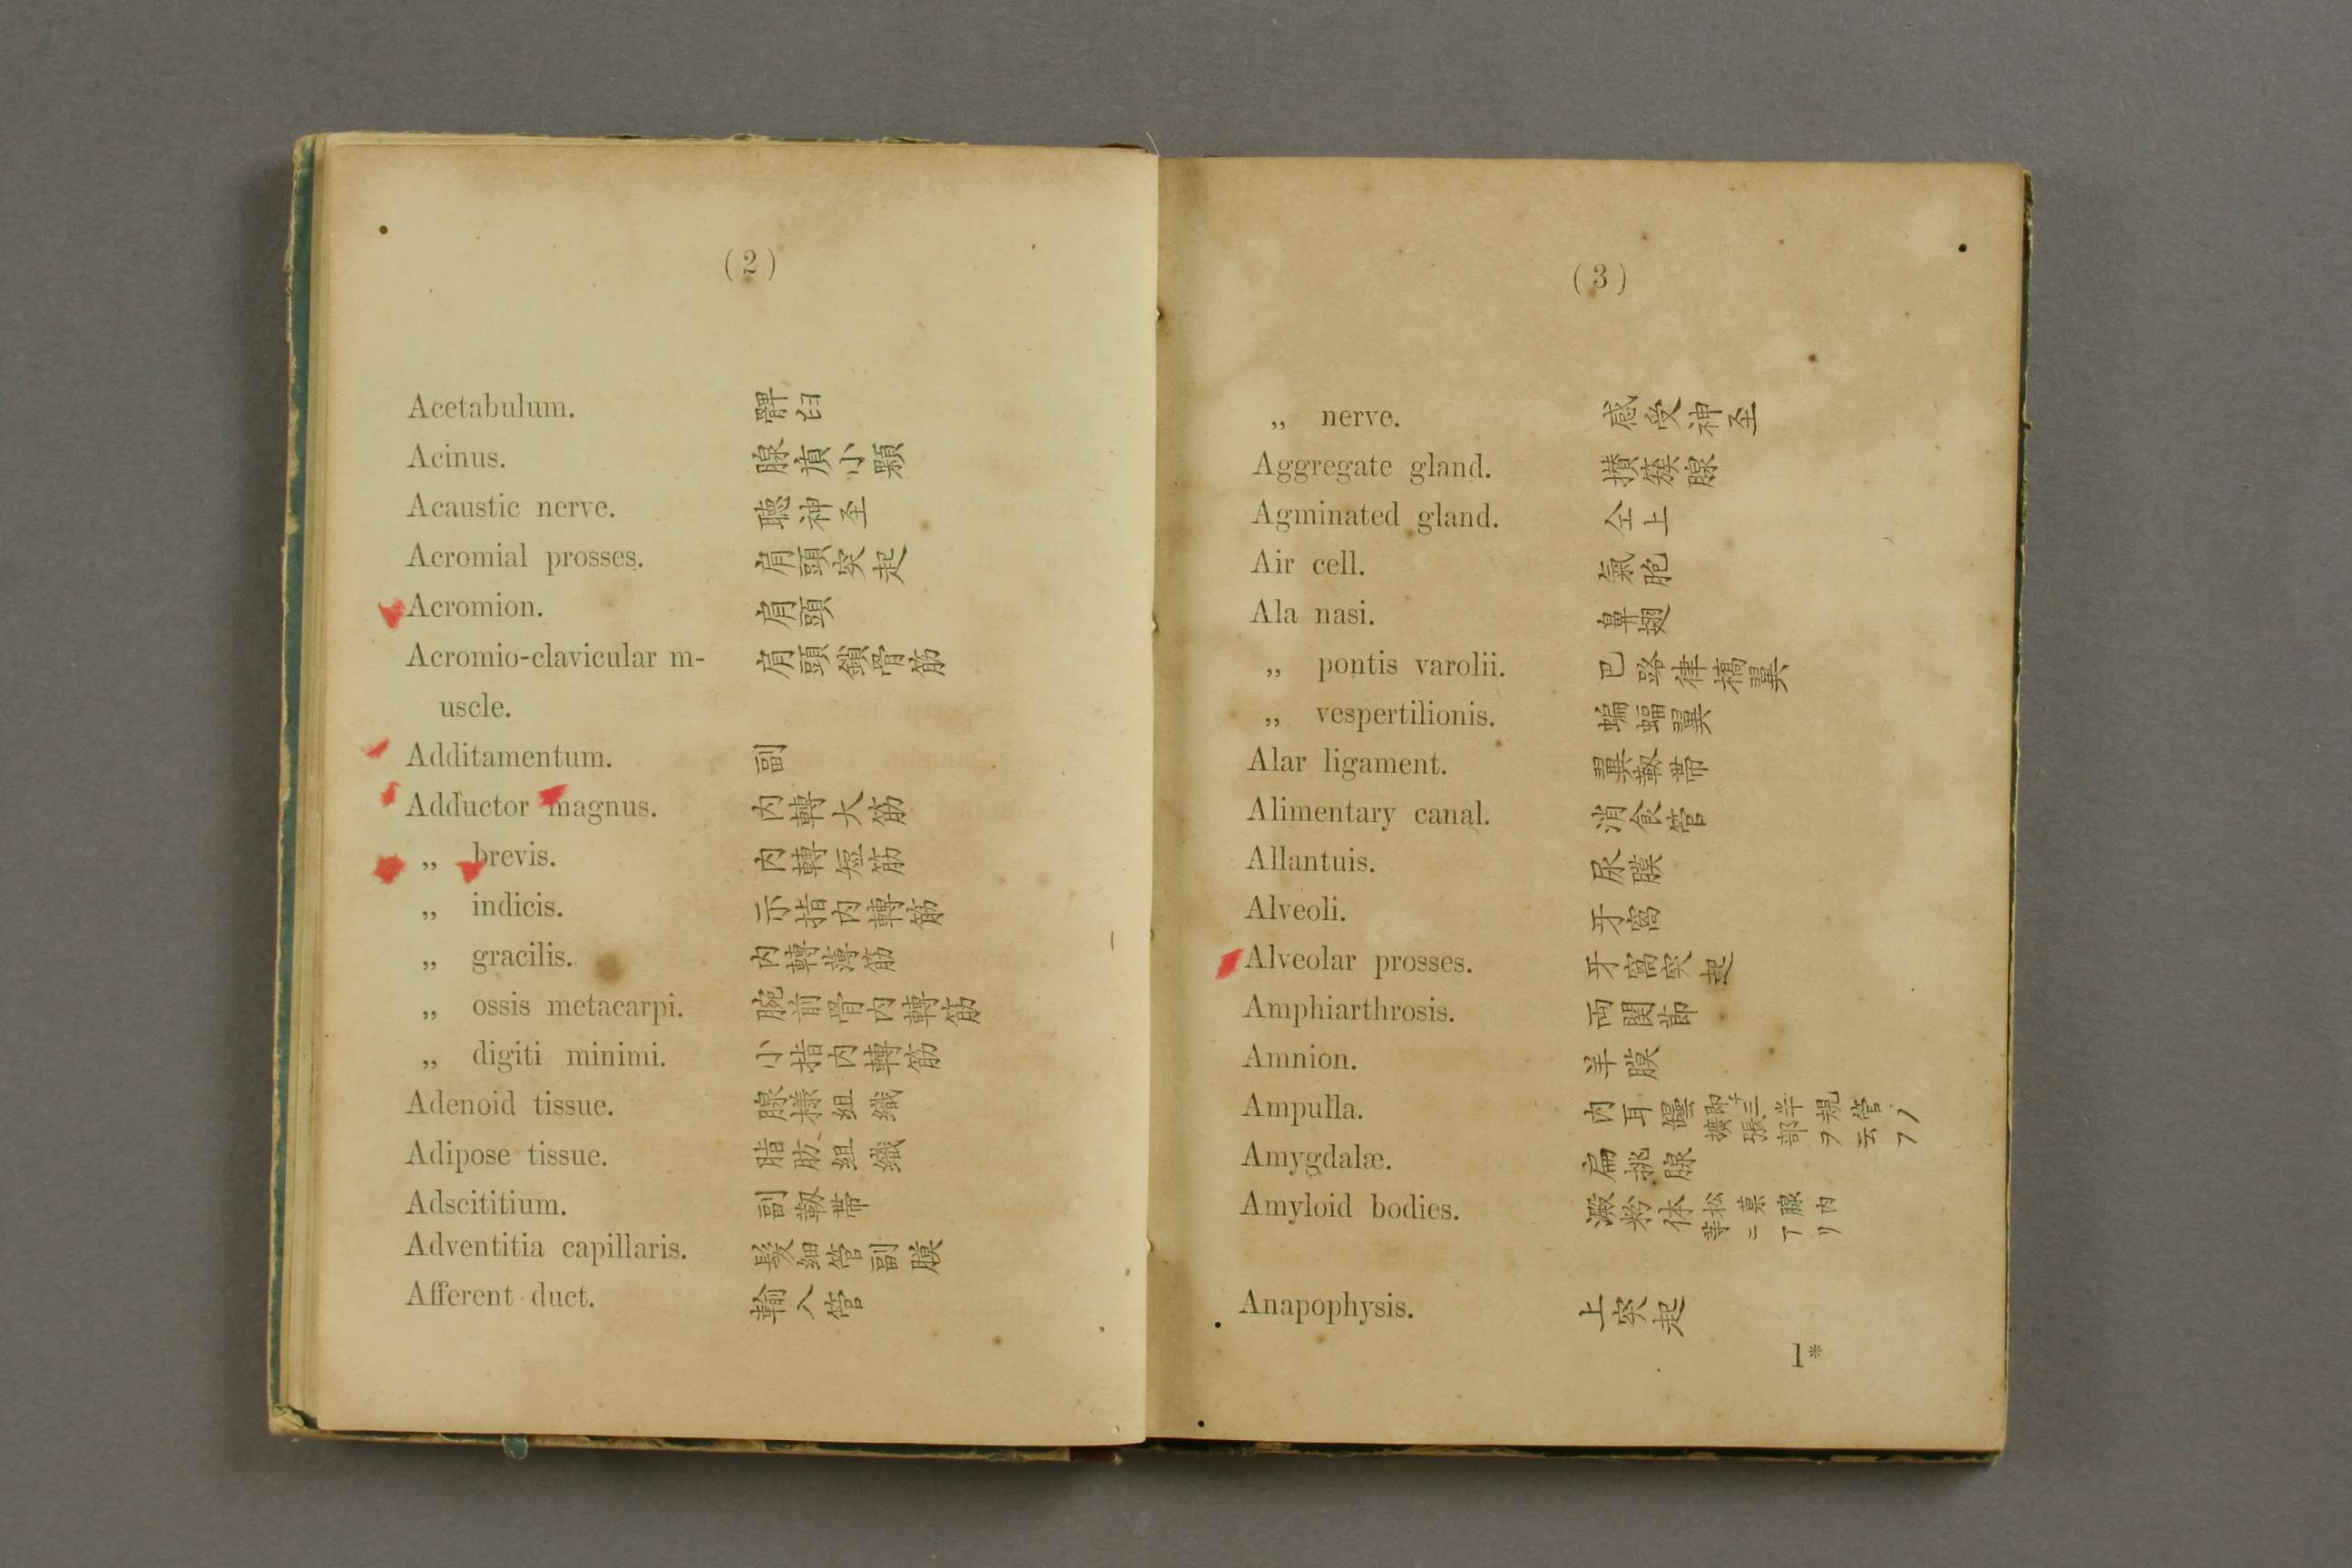 (2)
Acetabulum. 髀臼
Acinus. 腺㾱小顆
Acaustic nerve. 聴神圣
Acromial prosses. 肩頭突起
Acromion. 肩頭
Acromio-clavicular m- 肩頭鎖骨筋
uscle.
Additamentum. 副
Adductor magnus. 内轉大筋
„ brevis. 内轉短筋
„ indicis. 示指内轉筋
„ gracilis. 内轉薄筋
„ ossis metacarpi. 腕前骨内轉筋
„ digiti minimi. 小指内轉筋
Adenoid tissue. 腺様組織
Adipose tissue. 脂肪組織
Adscititium. 副靱帯
Adventitia capillaris. 髮細管副膜
Afferent duct. 輸入管
(3)
„ nerve. 感受神圣
Aggregate gland. 攅簇腺
Agminated gland. 仝上
Air cell. 氣胞
Ala nasi. 鼻翅
„ pontis varolii. 巴路律橋翼
„ vespertilionis. 蝙蝠翼
Alar ligament. 翼靱帯
Alimentary canal. 消食管
Allantuis. 尿膜
Alveoli. 牙窩
Alveolar prosses. 牙窩突起
Amphiarthrosis. 両関節
Amnion. 羊膜
Ampulla. 内耳罎即チ三半規管ノ擴張部ヲ云フ
Amygdalæ. 扁挑腺
Amyloid bodies. 澱粉体松菓腺内等ニアリ
Anapophysis. 上突起
1*